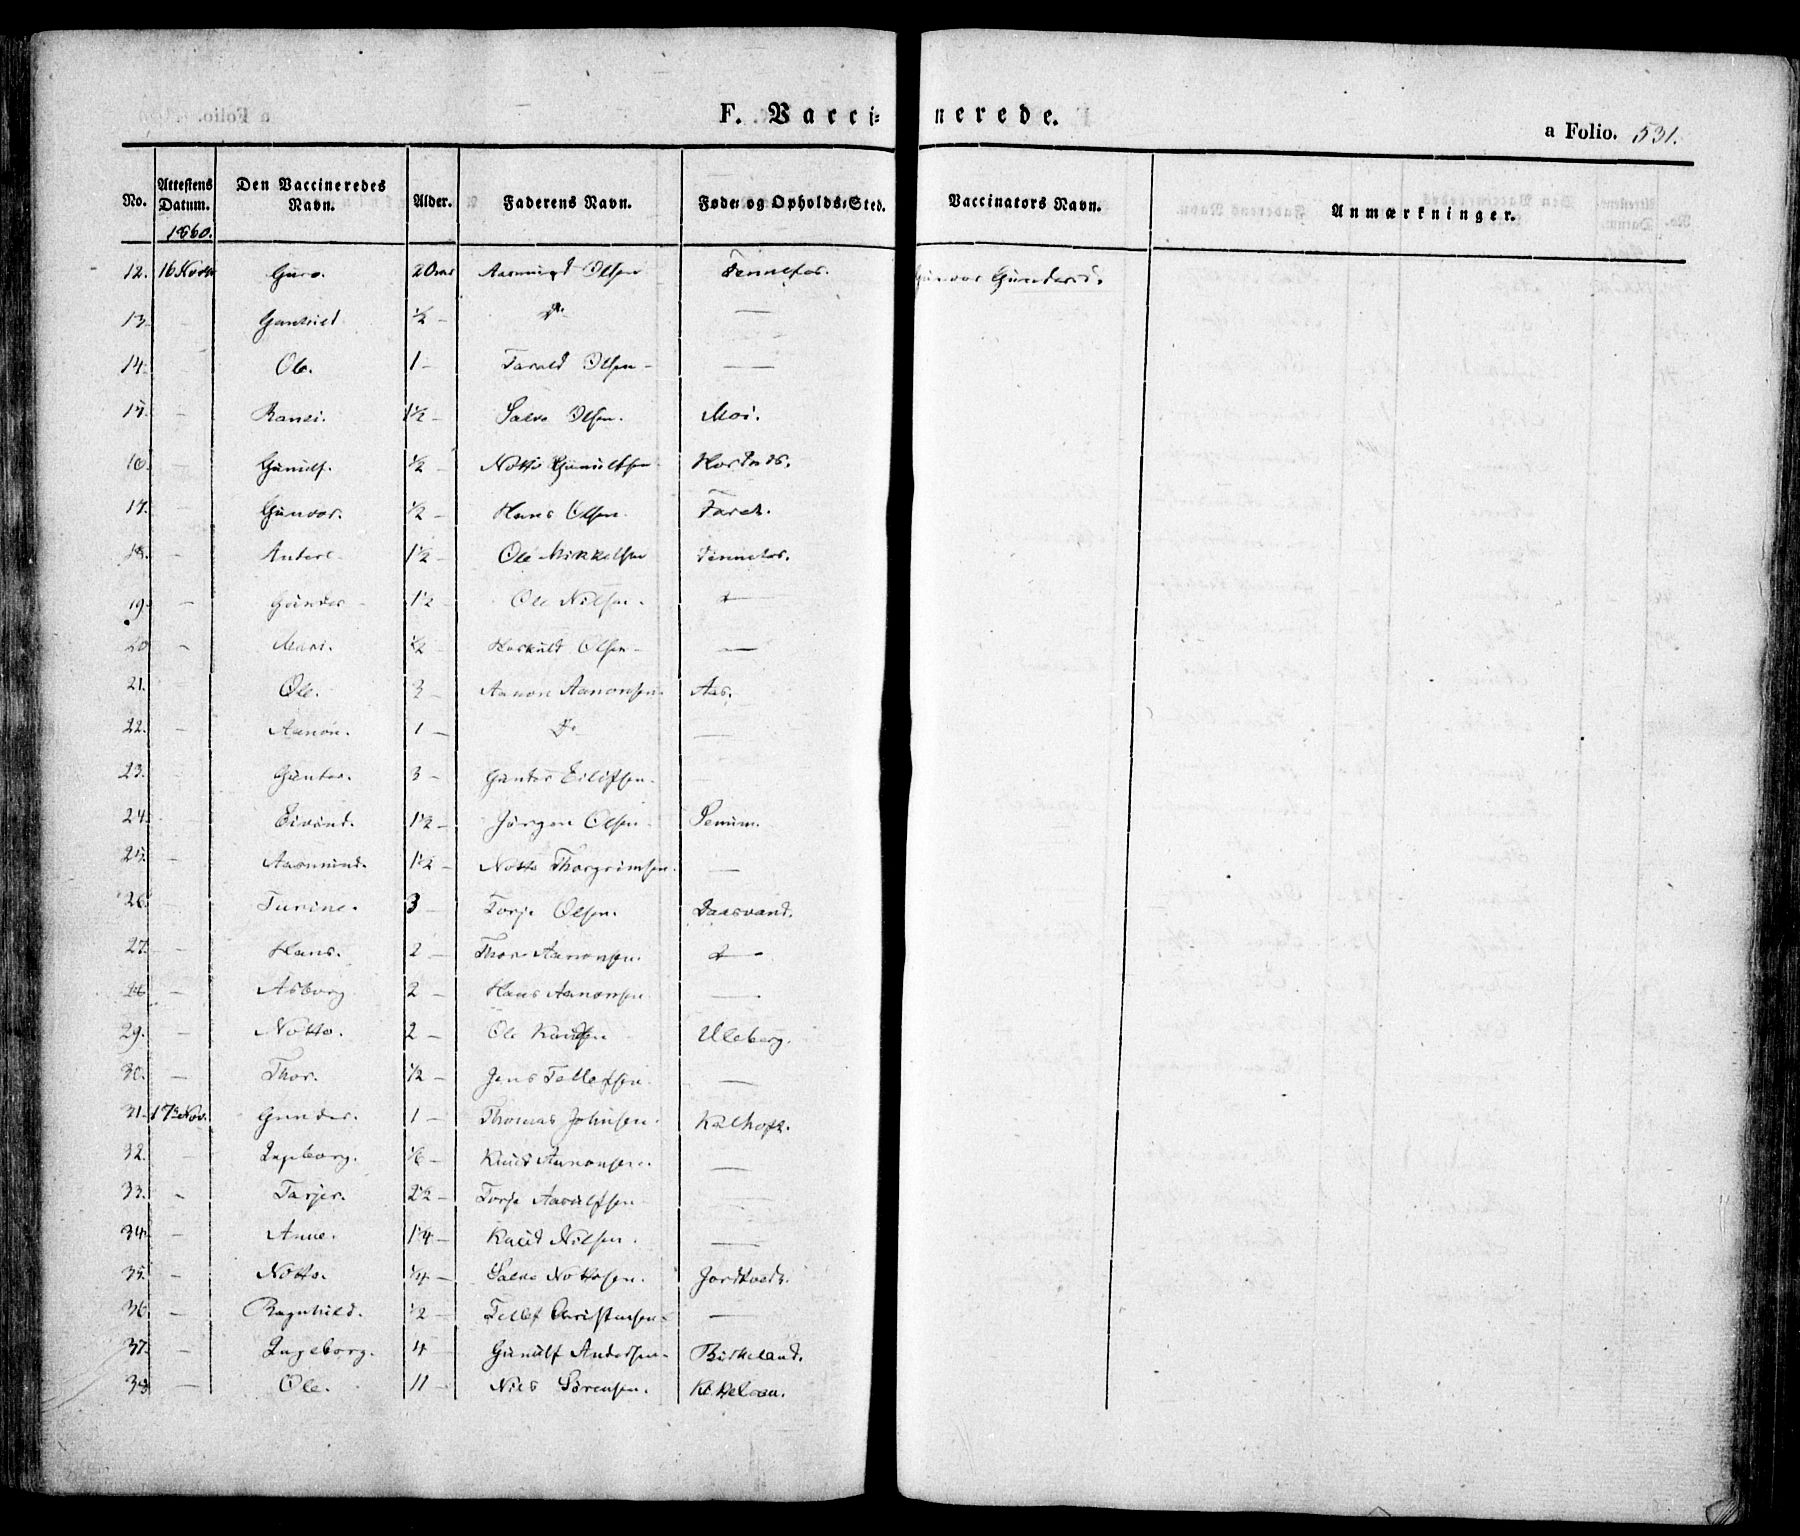 F. Vacci= nerede.
a Folio. 531.
No. Attestens Datum. Den Vaccineredes Navn. Alder. Faderens Navn. Føde- og Opholds-Sted. Vaccinators Navn. Anmærkninger.
1860.
12. 16 Novbr Guro. 2 Aar Aasmund Olsen Tennefos. Gunvor Gundersd.
13. - Gunhild ½ - Do —
14. - Ole. 1 - Tarald Olsen - —
15. - Ranei. 1½ - Salve Olsen. Moi.
16. - Gunulf. ½ - Notto Gunulfsen
17. - Gunvor. ½ - Hans Olsen. Faret.
18. - Anders 1½ - Ole Mikkelsen Tennefos.
19. - Gunder 1½ - Ole Nilsen. —
20 - Mari. ½ - Hoskuld Olsen - —
21. - Ole. 3 - Aanon Aanonsen. Aas.
22. - Aanon. 1 - Do —
23. - Gunder. 3 - Gunder Eilifsen. —
24. - Eivind. 1½ - Jörgen Olsen. Senum.
25. - Aasmund. 1½ - Notto Thorgrimsen. —
26. - Turine. 3 - Torje Olsen. Daasvand.
27. - Hans. 2 - Thor Aanonsen. —
28 - Asborg. 2 - Hans Aanonsen. —
29. - Notto. 2 - Ole Knudsen Uleberg.
30. - Thor. ½ - Jens Tellefsen. —
31. 17 Nov. Gunder. 1 - Thomas Johnsen. Kalhoft.
32. - Ingeborg. ⅙ - Knud Aanonsen. —
33. - Tarjer. 2½ - Torje Aasulfsen —
34. - Anne. 1¼ - Knud Nilsen. —
35. - Notto. ¼ - Salve Nottosen. Jordtveit.
36. - Ragnhild. ½ - Tellef Christensen - —
37. - Ingeborg. 4 - Gunulf Andersen. Birkeland.
38 - Ole. 11 - Niels Sörensen.